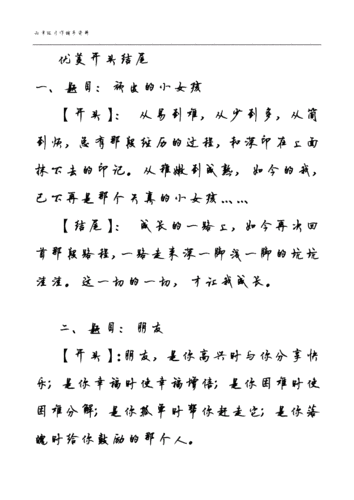 优美开头结尾
一、题目：顽皮的小女孩
【开头】：从易到难，从少到多，从简
到快，总有那段经历的过程，和深印在上面
抹下去的印记。从稚嫩到成熟，如今的我，
已不再是那个天真的小女孩……
【结尾】：成长的一路上，如今再次回
首那段路程，一路走来深一脚浅一脚的坑坑
洼洼。这一切的一切，才让我成长。
二、题目：朋友
【开头】：朋友，是你高兴时与你分享快
乐；是你幸福时使幸福增倍；是你困难时使
困难分解；是你孤单时帮你赶走它；是你落
魄时给你鼓励的那个人。